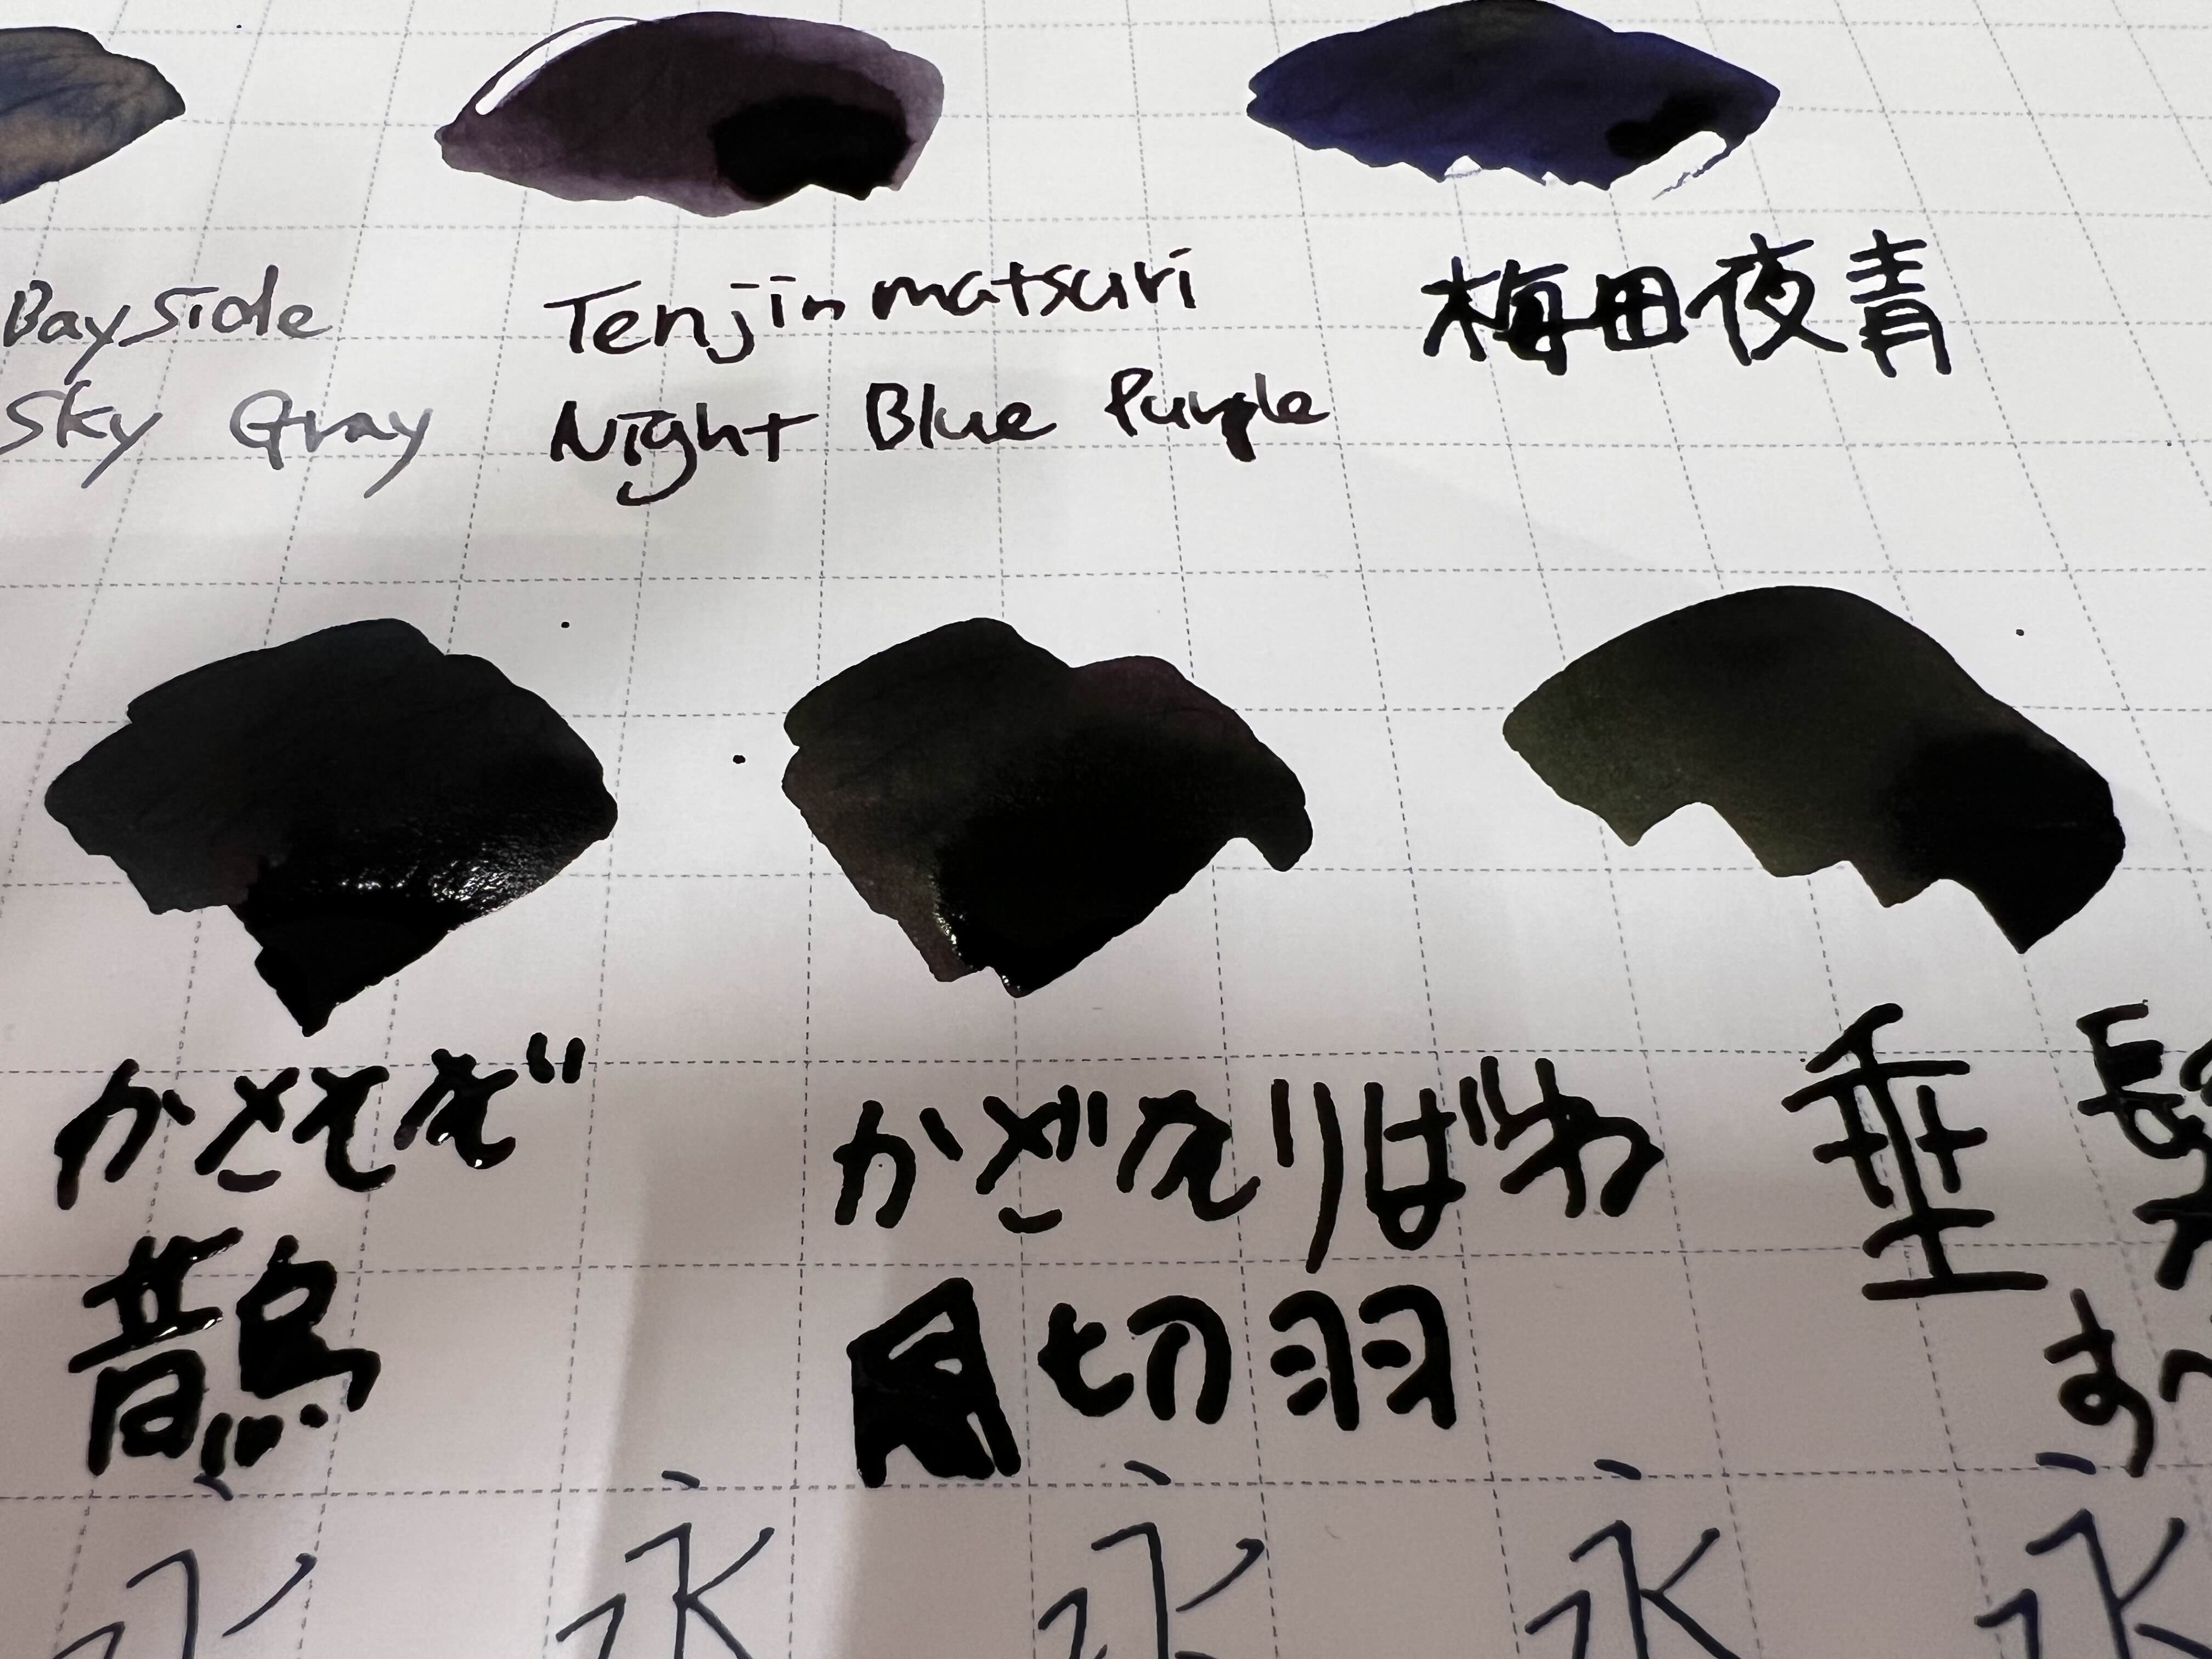 Bayside
Sky Gray
Tenjinmatsuri
Night Blue Purple
梅田夜青
かささぎ
鵲
かざきりばね
風切羽
垂
す
永 永 永 永 永